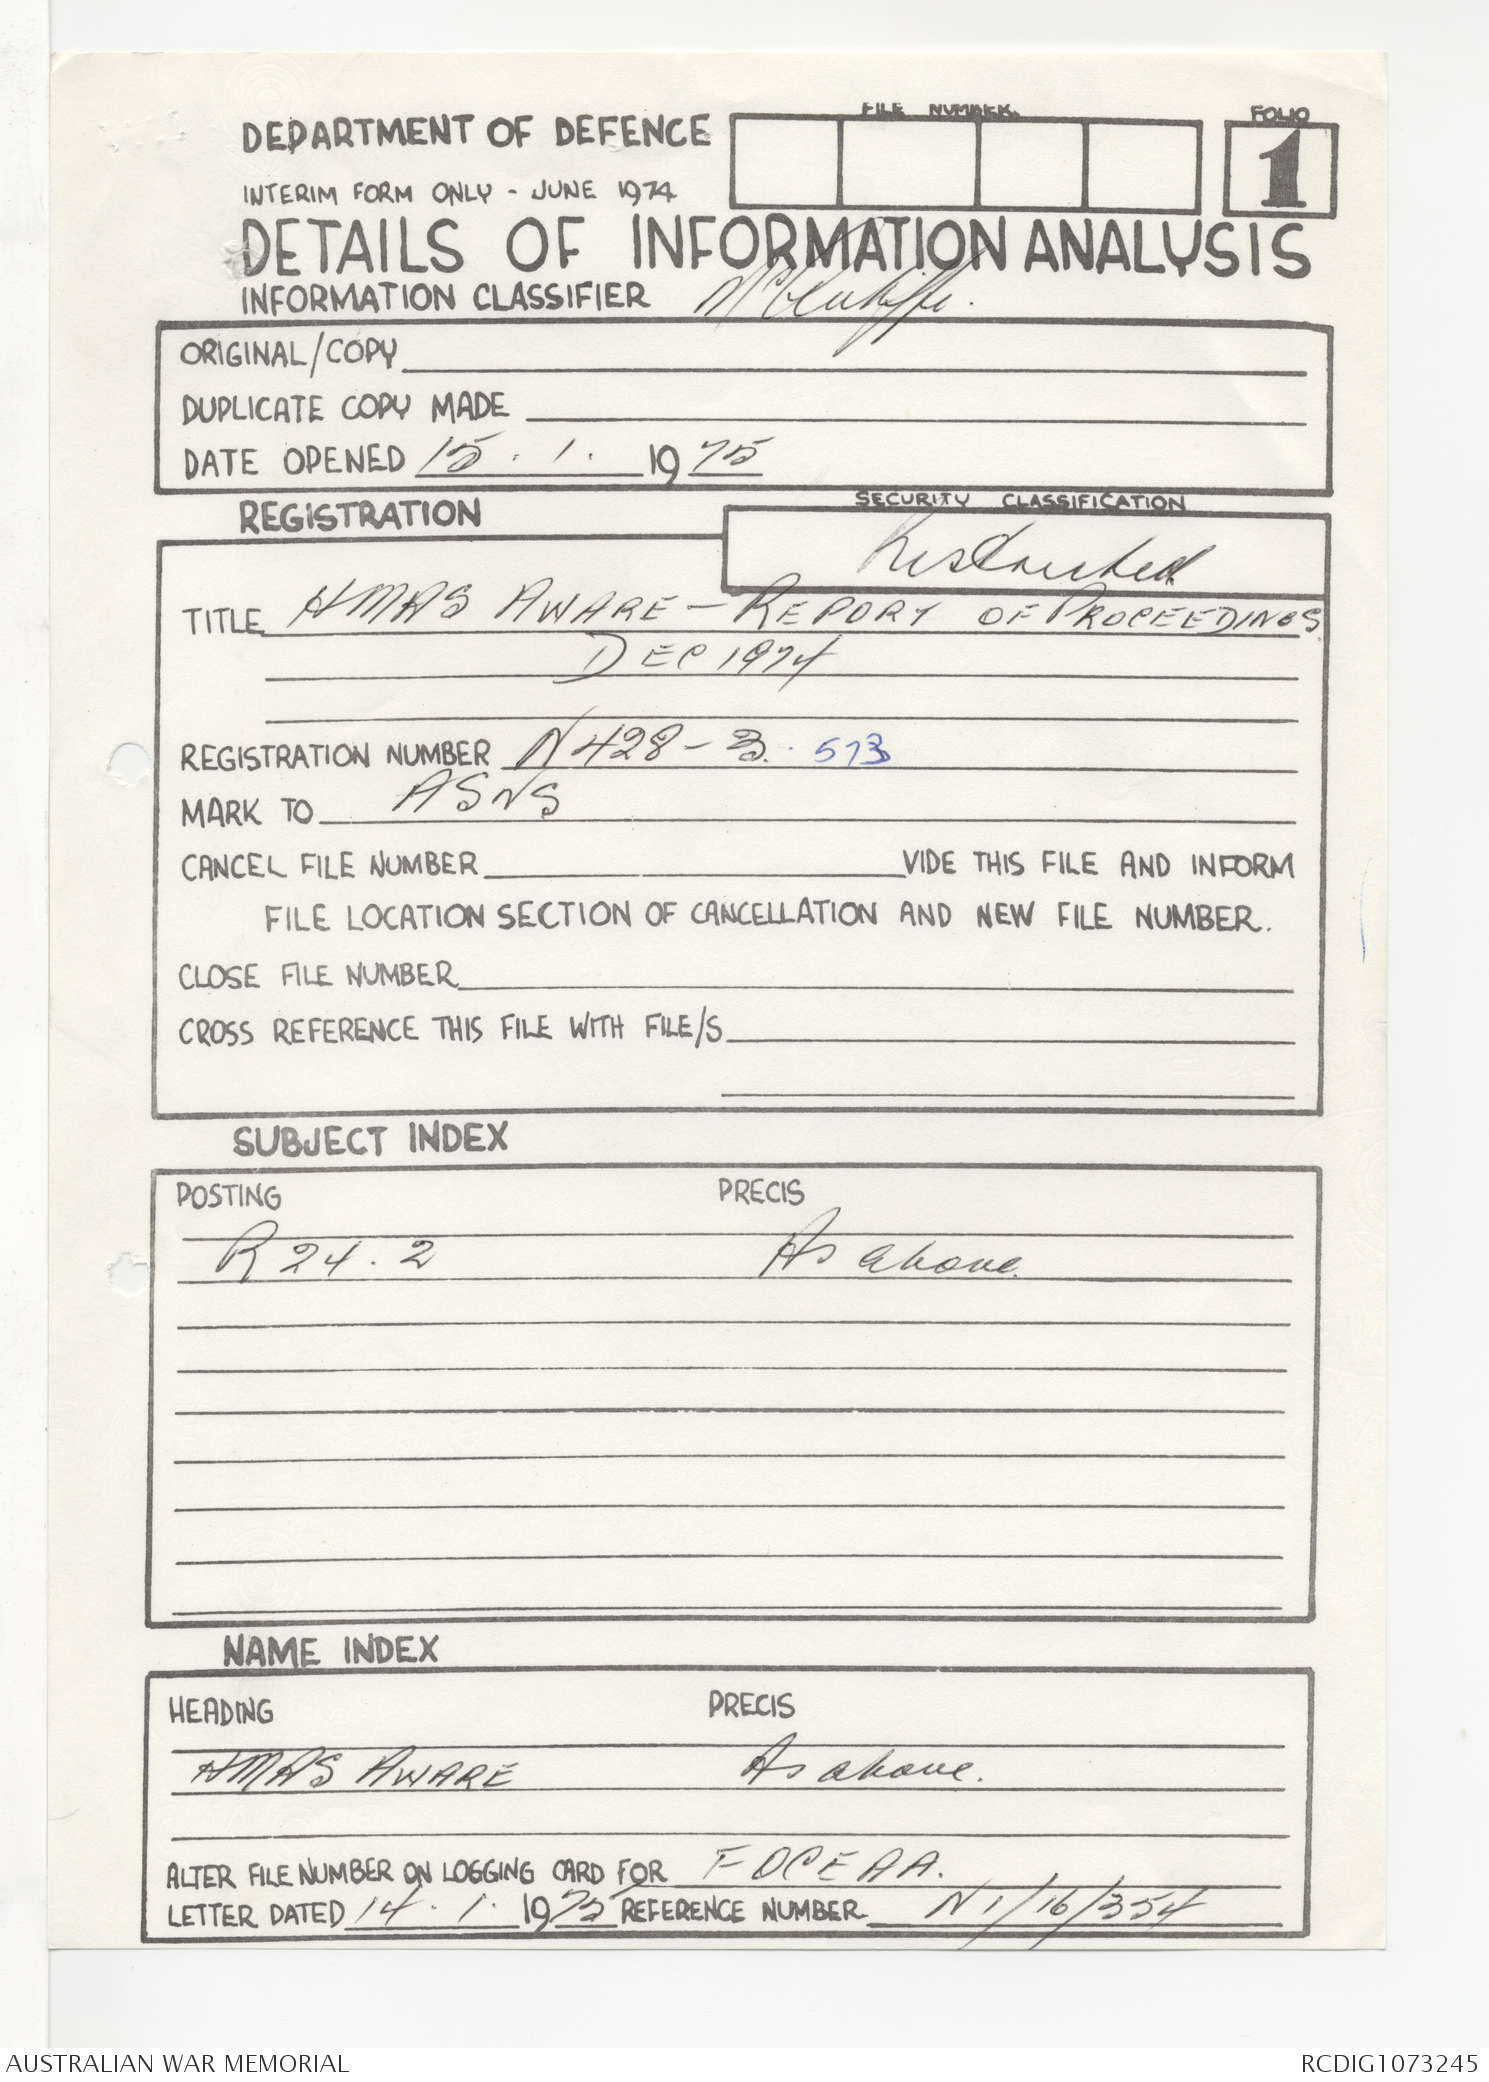 FILE NUMBER.
FOLIO
DEPARTMENT OF DEFENCE
1
INTERIM FORM ONLY - JUNE 1974
DETAILS OF INFORMATION ANALYSIS
INFORMATION CLASSIFIER
ORIGINAL/COPY
DUPLICATE COPY MADE
DATE OPENED 15 . 1 . 1975
SECURITY CLASSIFICATION
REGISTRATION
Restricted
TITLE HMAS AWARE - REPORT OF PROCEEDINGS.
DEC 1974
REGISTRATION NUMBER N428-3. 573
MARK TO ASNS
CANCEL FILE NUMBER VIDE THIS FILE AND INFORM
FILE LOCATION SECTION OF CANCELLATION AND NEW FILE NUMBER.
CLOSE FILE NUMBER
CROSS REFERENCE THIS FILE WITH FILE/S
SUBJECT INDEX
POSTING PRECIS
R24.2 As above.
NAME INDEX
HEADING PRECIS
HMAS AWARE As above.
ALTER FILE NUMBER ON LOGGING CARD FOR FOCEAA.
LETTER DATED 14 . 1 . 1975 REFERENCE NUMBER N1/16/354
AUSTRALIAN WAR MEMORIAL RCDIG1073245